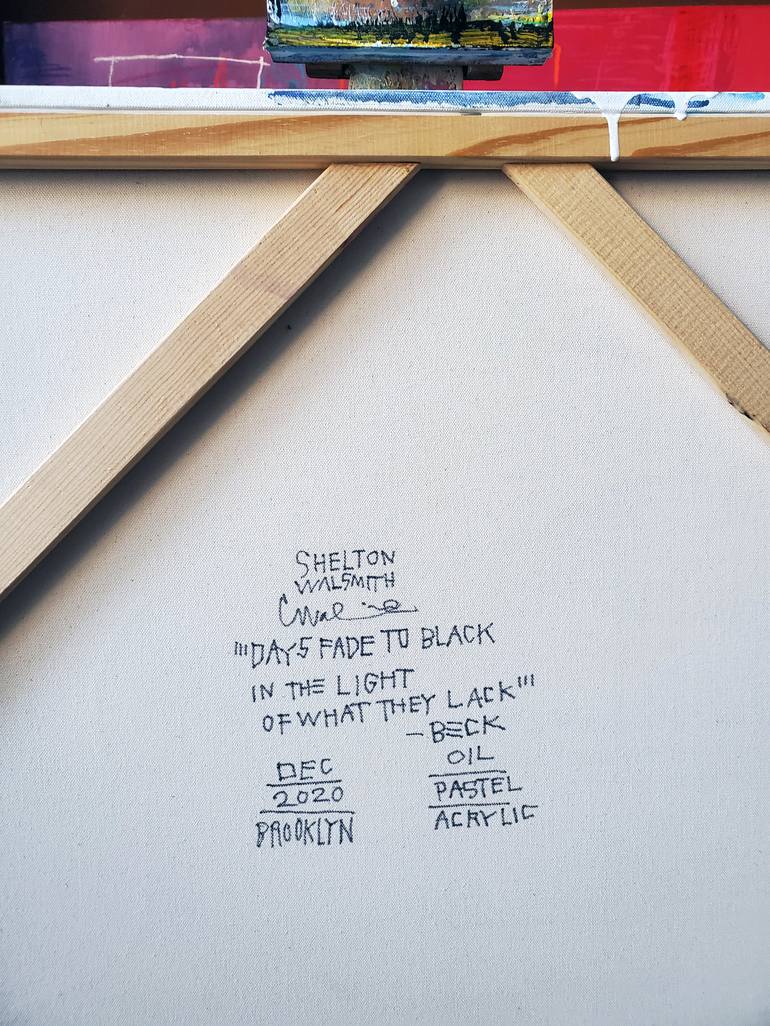 SHELTON
WALSMITH
"'DAYS FADE TO BLACK
IN THE LIGHT
OF WHAT THEY LACK'"
– BECK
DEC
2020
BROOKLYN
OIL
PASTEL
ACRYLIC